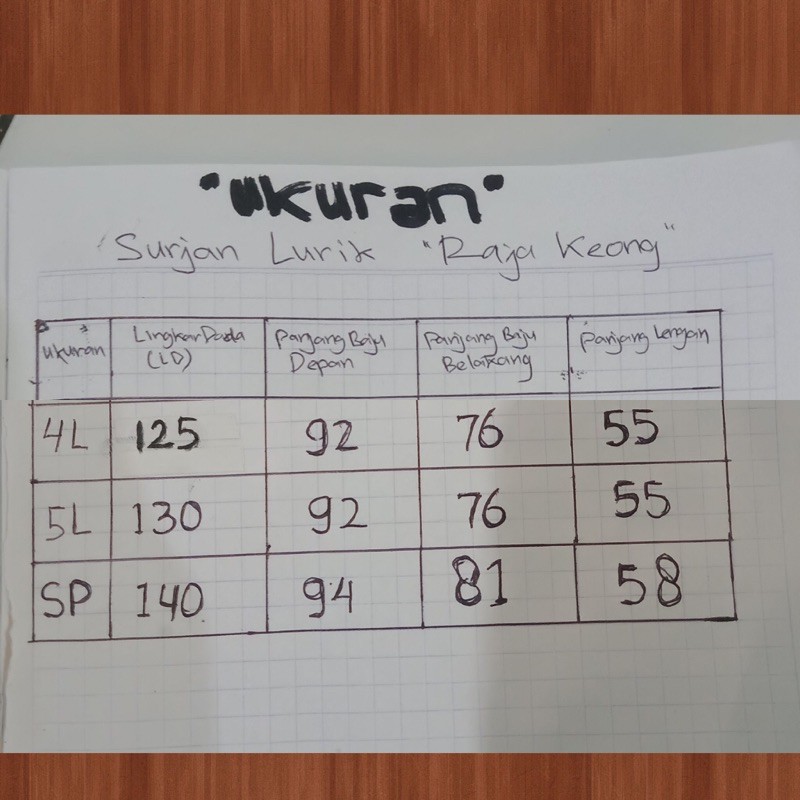 "ukuran"
Surjan Lurik "Raja Keong"
ukuran Lingkar Dada (LD) Panjang Baju Depan Panjang Baju Belakang Panjang Lengan
4L 125 92 76 55
5L 130 92 76 55
SP 140 94 81 58